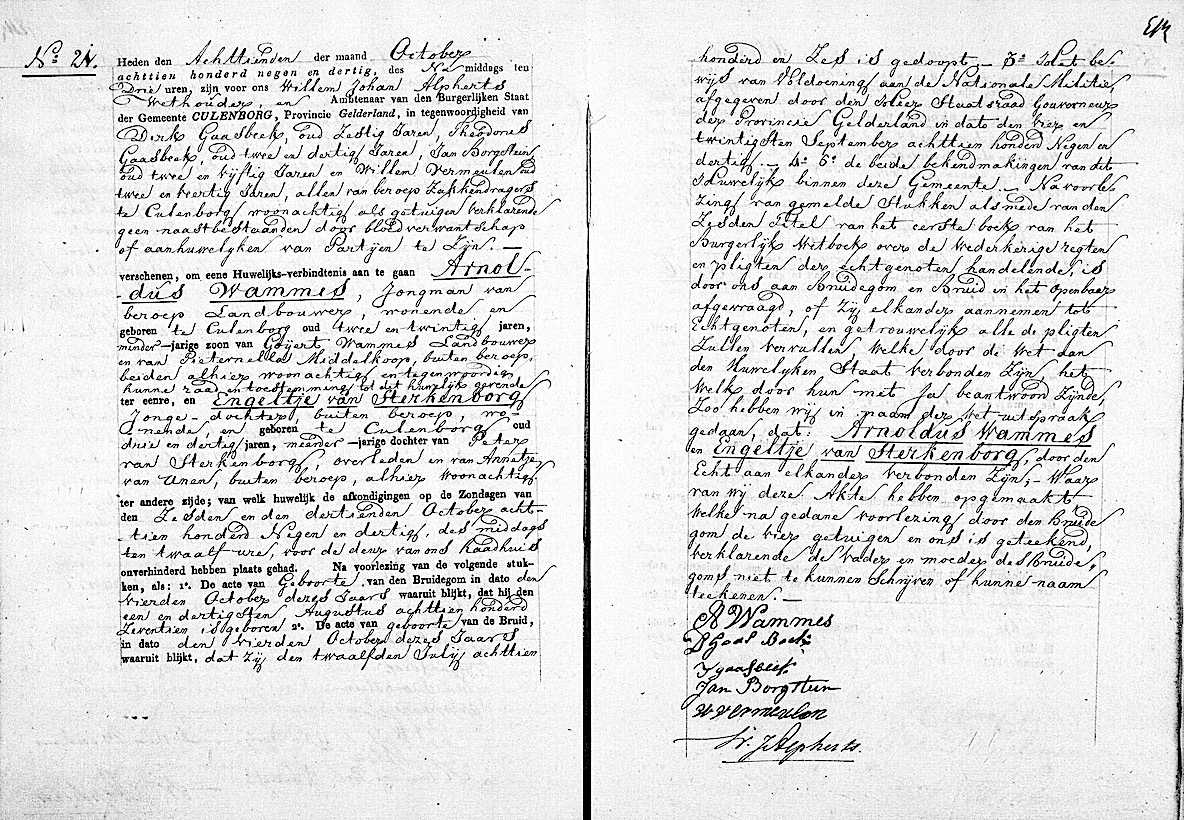 No. 21.
Heden den Achttienden der maand October
achttien honderd negen en dertig, des Na middags ten
Drie uren, zijn voor ons Willem Johan Alpherts
Wethouder, en Ambtenaar van den Burgerlijken Staat
der Gemeente CULENBORG, Provincie Gelderland, in tegenwoordigheid van
Dirk Gaasbeek, oud Zestig Jaren, Theodorus
Gaasbeek, oud twee en dertig Jaren, Jan Borgstein
oud twee en vijftig Jaren en Willem Vermeulen oud
twee en veertig Jaren, allen van beroep Zakkendragers
te Culenborg woonachtig als getuigen verklarende
geen naastbestaanden door bloedverwantschap
of aanhuwelijken van Partijen te Zijn. —
verschenen, om eene Huwelijks-verbindtenis aan te gaan Arnol-
-dus Wammes, Jongman van
beroep Landbouwer, wonende en
geboren te Culenborg oud twee en twintig jaren,
minder-jarige zoon van Goijert Wammes Landbouwer
en van Pieternella Middelkoop, buiten beroep,
beiden alhier woonachtig en tegenwoordig,
hunne raad en toestemming tot dit huwelijk gevende
ter eenre, en Engeltje van Sterkenborg
Jonge-dochter, buiten beroep, wo-
nende, en geboren te Culenborg oud
drie en dertig jaren, meerder-jarige dochter van Peter
van Sterkenborg, overleden en van Annetje
van Anen, buiten beroep, alhier woonachtig
ter andere zijde; van welk huwelijk de afkondigingen op de Zondagen van
den Zesden en den dertienden October acht-
-tien honderd Negen en dertig, des middags
ten twaalf ure, voor de deur van ons Raadhuis
onverhinderd hebben plaats gehad. Na voorlezing van de volgende stuk-
ken, als: 1o. De acte van Geboorte van den Bruidegom in dato den
vierden October dezes Jaars waaruit blijkt, dat hij den
een en dertigsten Augustus achttien honderd
Zeventien is geboren 2o. De acte van geboorte van de Bruid,
in dato den vierden October dezes Jaars
waaruit blijkt, dat zij den twaalfden Julij achttien
honderd en Zes is gedoopt — 3o Het be-
wijs van Voldoening aan de Nationale Militie,
afgegeven door den Heer Staatsraad Gouverneur
der Provincie Gelderland in dato den vier en
twintigsten September achttien honderd Negen en
dertig. — 4o 5o de beide bekendmakingen van dit
Huwelijk binnen deze Gemeente. — Na voorle-
zing van gemelde Stukken alsmede van den
Zesden Titel van het eerste boek van het
Burgerlijk Wetboek over de Wederkerige regten
en pligten der echtgenoten handelende, is
door ons aan Bruidegom en Bruid in het openbaar
afgevraagd, of Zij elkander aannemen tot
Echtgenoten, en getrouwelijk alle de pligten
Zullen vervullen welke door de wet aan
den Huwelijken Staat verbonden Zijn, het
welk door hun met Ja beantwoord Zijnde,
Zoo hebben wij in naam der Wet uitspraak
gedaan, dat: Arnoldus Wammes
en Engeltje van Sterkenborg, door den
Echt aan elkander verbonden Zijn; — Waar
van wij deze Akte hebben opgemaakt
welke na gedane voorlezing door den Bruide
gom de vier getuigen en ons is geteekend,
verklarende de vader en moeder des Bruide-
goms niet te kunnen Schrijven of hunne naam
teekenen. —
A Wammes
D Gaas Beek
T gaasbeek
Jan Borgstein
W vermeulen
W. J Alpherts.